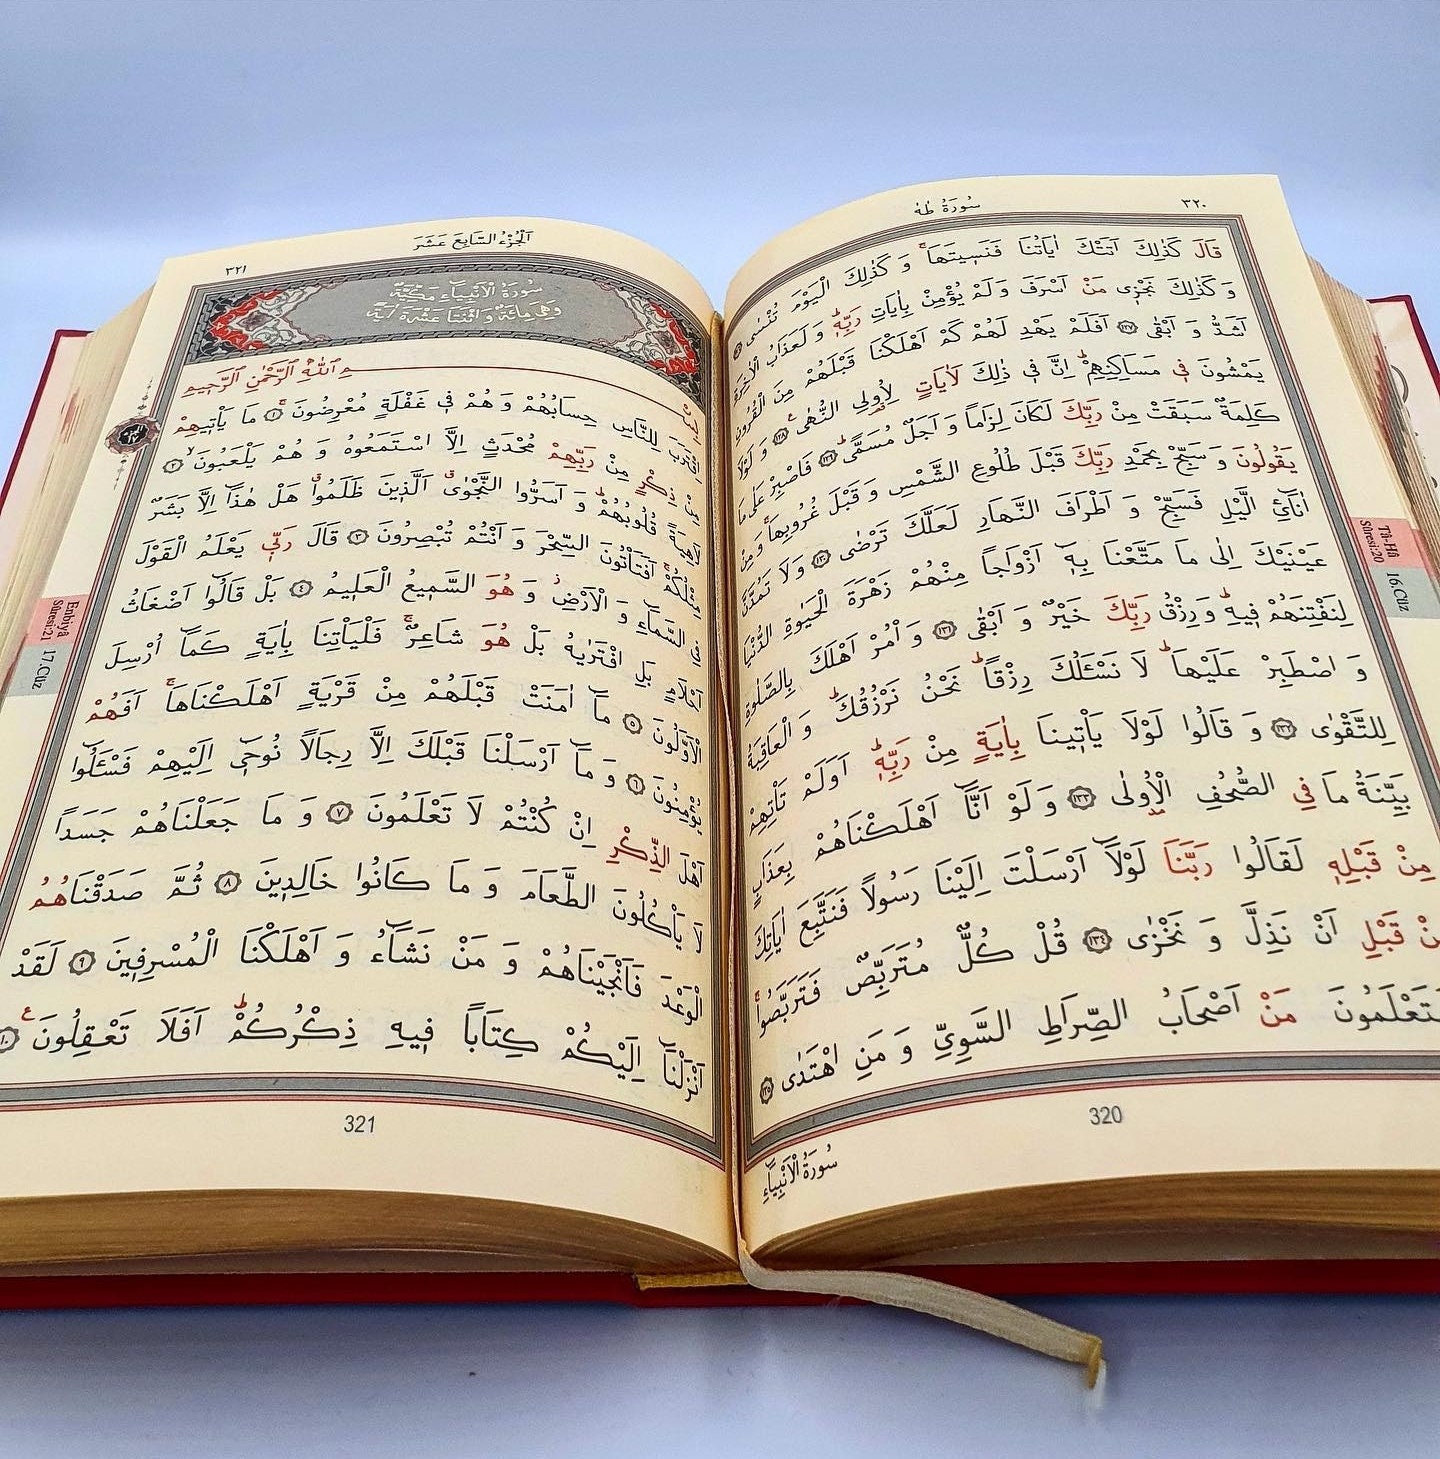 ٣٢٠
سُورَةُ طٰهٰ
قَالَ كَذٰلِكَ اَتَتْكَ اٰيَاتُنَا فَنَسٖيتَهَاۚ وَ كَذٰلِكَ الْيَوْمَ تُنْسٰى ﴿١٢٦﴾
وَ كَذٰلِكَ نَجْزٖى مَنْ اَسْرَفَ وَ لَمْ يُؤْمِنْ بِاٰيَاتِ رَبِّهٖؕ وَ لَعَذَابُ الْاٰخِرَةِ
اَشَدُّ وَ اَبْقٰى ﴿١٢٧﴾ اَفَلَمْ يَهْدِ لَهُمْ كَمْ اَهْلَكْنَا قَبْلَهُمْ مِنَ الْقُرُونِ
يَمْشُونَ فٖى مَسَاكِنِهِمْؕ اِنَّ فٖى ذٰلِكَ لَاٰيَاتٍ لِاُولِى النُّهٰى ﴿١٢٨﴾ وَ لَوْلَا
كَلِمَةٌ سَبَقَتْ مِنْ رَبِّكَ لَكَانَ لِزَامًا وَ اَجَلٌ مُسَمًّىؕ ﴿١٢٩﴾ فَاصْبِرْ عَلٰى مَا
يَقُولُونَ وَ سَبِّحْ بِحَمْدِ رَبِّكَ قَبْلَ طُلُوعِ الشَّمْسِ وَ قَبْلَ غُرُوبِهَاۚ وَ مِنْ
اٰنَآئِ الَّيْلِ فَسَبِّحْ وَ اَطْرَافَ النَّهَارِ لَعَلَّكَ تَرْضٰى ﴿١٣٠﴾ وَ لَا تَمُدَّنَّ
عَيْنَيْكَ اِلٰى مَا مَتَّعْنَا بِهٖٓ اَزْوَاجًا مِنْهُمْ زَهْرَةَ الْحَيٰوةِ الدُّنْيَا
لِنَفْتِنَهُمْ فٖيهِؕ وَ رِزْقُ رَبِّكَ خَيْرٌ وَ اَبْقٰى ﴿١٣١﴾ وَ أْمُرْ اَهْلَكَ بِالصَّلٰوةِ
وَ اصْطَبِرْ عَلَيْهَاؕ لَا نَسْـَٔلُكَ رِزْقًاؕ نَحْنُ نَرْزُقُكَؕ وَ الْعَاقِبَةُ
لِلتَّقْوٰى ﴿١٣٢﴾ وَ قَالُوا لَوْلَا يَأْتٖينَا بِاٰيَةٍ مِنْ رَبِّهٖؕ اَوَلَمْ تَأْتِهِمْ
بَيِّنَةُ مَا فِي الصُّحُفِ الْاُولٰى ﴿١٣٣﴾ وَ لَوْ اَنَّٓا اَهْلَكْنَاهُمْ بِعَذَابٍ
مِنْ قَبْلِهٖ لَقَالُوا رَبَّنَا لَوْلَٓا اَرْسَلْتَ اِلَيْنَا رَسُولًا فَنَتَّبِعَ اٰيَاتِكَ
مِنْ قَبْلِ اَنْ نَذِلَّ وَ نَخْزٰى ﴿١٣٤﴾ قُلْ كُلٌّ مُتَرَبِّصٌ فَتَرَبَّصُواۚ
فَسَتَعْلَمُونَ مَنْ اَصْحَابُ الصِّرَاطِ السَّوِيِّ وَ مَنِ اهْتَدٰى ﴿١٣٥﴾
320
سُورَةُ الْاَنْبِيَاءِ
Tâ-Hâ
Sûresi:20
16.Cüz
اَلْجُزْءُ السَّابِعَ عَشَرَ
٣٢١
سُورَةُ الْاَنْبِيَاءِ مَكِّيَّةٌ
وَهِىَ مِائَةٌ وَ اثْنَتَا عَشْرَةَ اٰيَةً
بِسْمِ اللّٰهِ الرَّحْمٰنِ الرَّحٖيمِ
اِقْتَرَبَ لِلنَّاسِ حِسَابُهُمْ وَ هُمْ فٖى غَفْلَةٍ مُعْرِضُونَۚ ﴿١﴾ مَا يَأْتٖيهِمْ
مِنْ ذِكْرٍ مِنْ رَبِّهِمْ مُحْدَثٍ اِلَّا اسْتَمَعُوهُ وَ هُمْ يَلْعَبُونَۙ ﴿٢﴾
لَاهِيَةً قُلُوبُهُمْؕ وَ اَسَرُّوا النَّجْوٰىۗ اَلَّذٖينَ ظَلَمُواۗ هَلْ هٰذَٓا اِلَّا بَشَرٌ
مِثْلُكُمْۚ اَفَتَأْتُونَ السِّحْرَ وَ اَنْتُمْ تُبْصِرُونَ ﴿٣﴾ قَالَ رَبّٖى يَعْلَمُ الْقَوْلَ
فِى السَّمَٓاءِ وَ الْاَرْضِؗ وَ هُوَ السَّمٖيعُ الْعَلٖيمُ ﴿٤﴾ بَلْ قَالُٓوا اَضْغَاثُ
اَحْلَامٍ بَلِ افْتَرٰيهُ بَلْ هُوَ شَاعِرٌۚ فَلْيَأْتِنَا بِاٰيَةٍ كَمَٓا اُرْسِلَ
الْاَوَّلُونَ ﴿٥﴾ مَٓا اٰمَنَتْ قَبْلَهُمْ مِنْ قَرْيَةٍ اَهْلَكْنَاهَاۚ اَفَهُمْ
يُؤْمِنُونَ ﴿٦﴾ وَ مَٓا اَرْسَلْنَا قَبْلَكَ اِلَّا رِجَالًا نُوحٖٓى اِلَيْهِمْ فَسْـَٔلُٓوا
اَهْلَ الذِّكْرِ اِنْ كُنْتُمْ لَا تَعْلَمُونَ ﴿٧﴾ وَ مَا جَعَلْنَاهُمْ جَسَدًا
لَا يَأْكُلُونَ الطَّعَامَ وَ مَا كَانُوا خَالِدٖينَ ﴿٨﴾ ثُمَّ صَدَقْنَاهُمُ
الْوَعْدَ فَاَنْجَيْنَاهُمْ وَ مَنْ نَشَٓاءُ وَ اَهْلَكْنَا الْمُسْرِفٖينَ ﴿٩﴾ لَقَدْ
اَنْزَلْنَٓا اِلَيْكُمْ كِتَابًا فٖيهِ ذِكْرُكُمْؕ اَفَلَا تَعْقِلُونَࣖ ﴿١٠﴾
321
Enbiyâ
Sûresi:21
17.Cüz